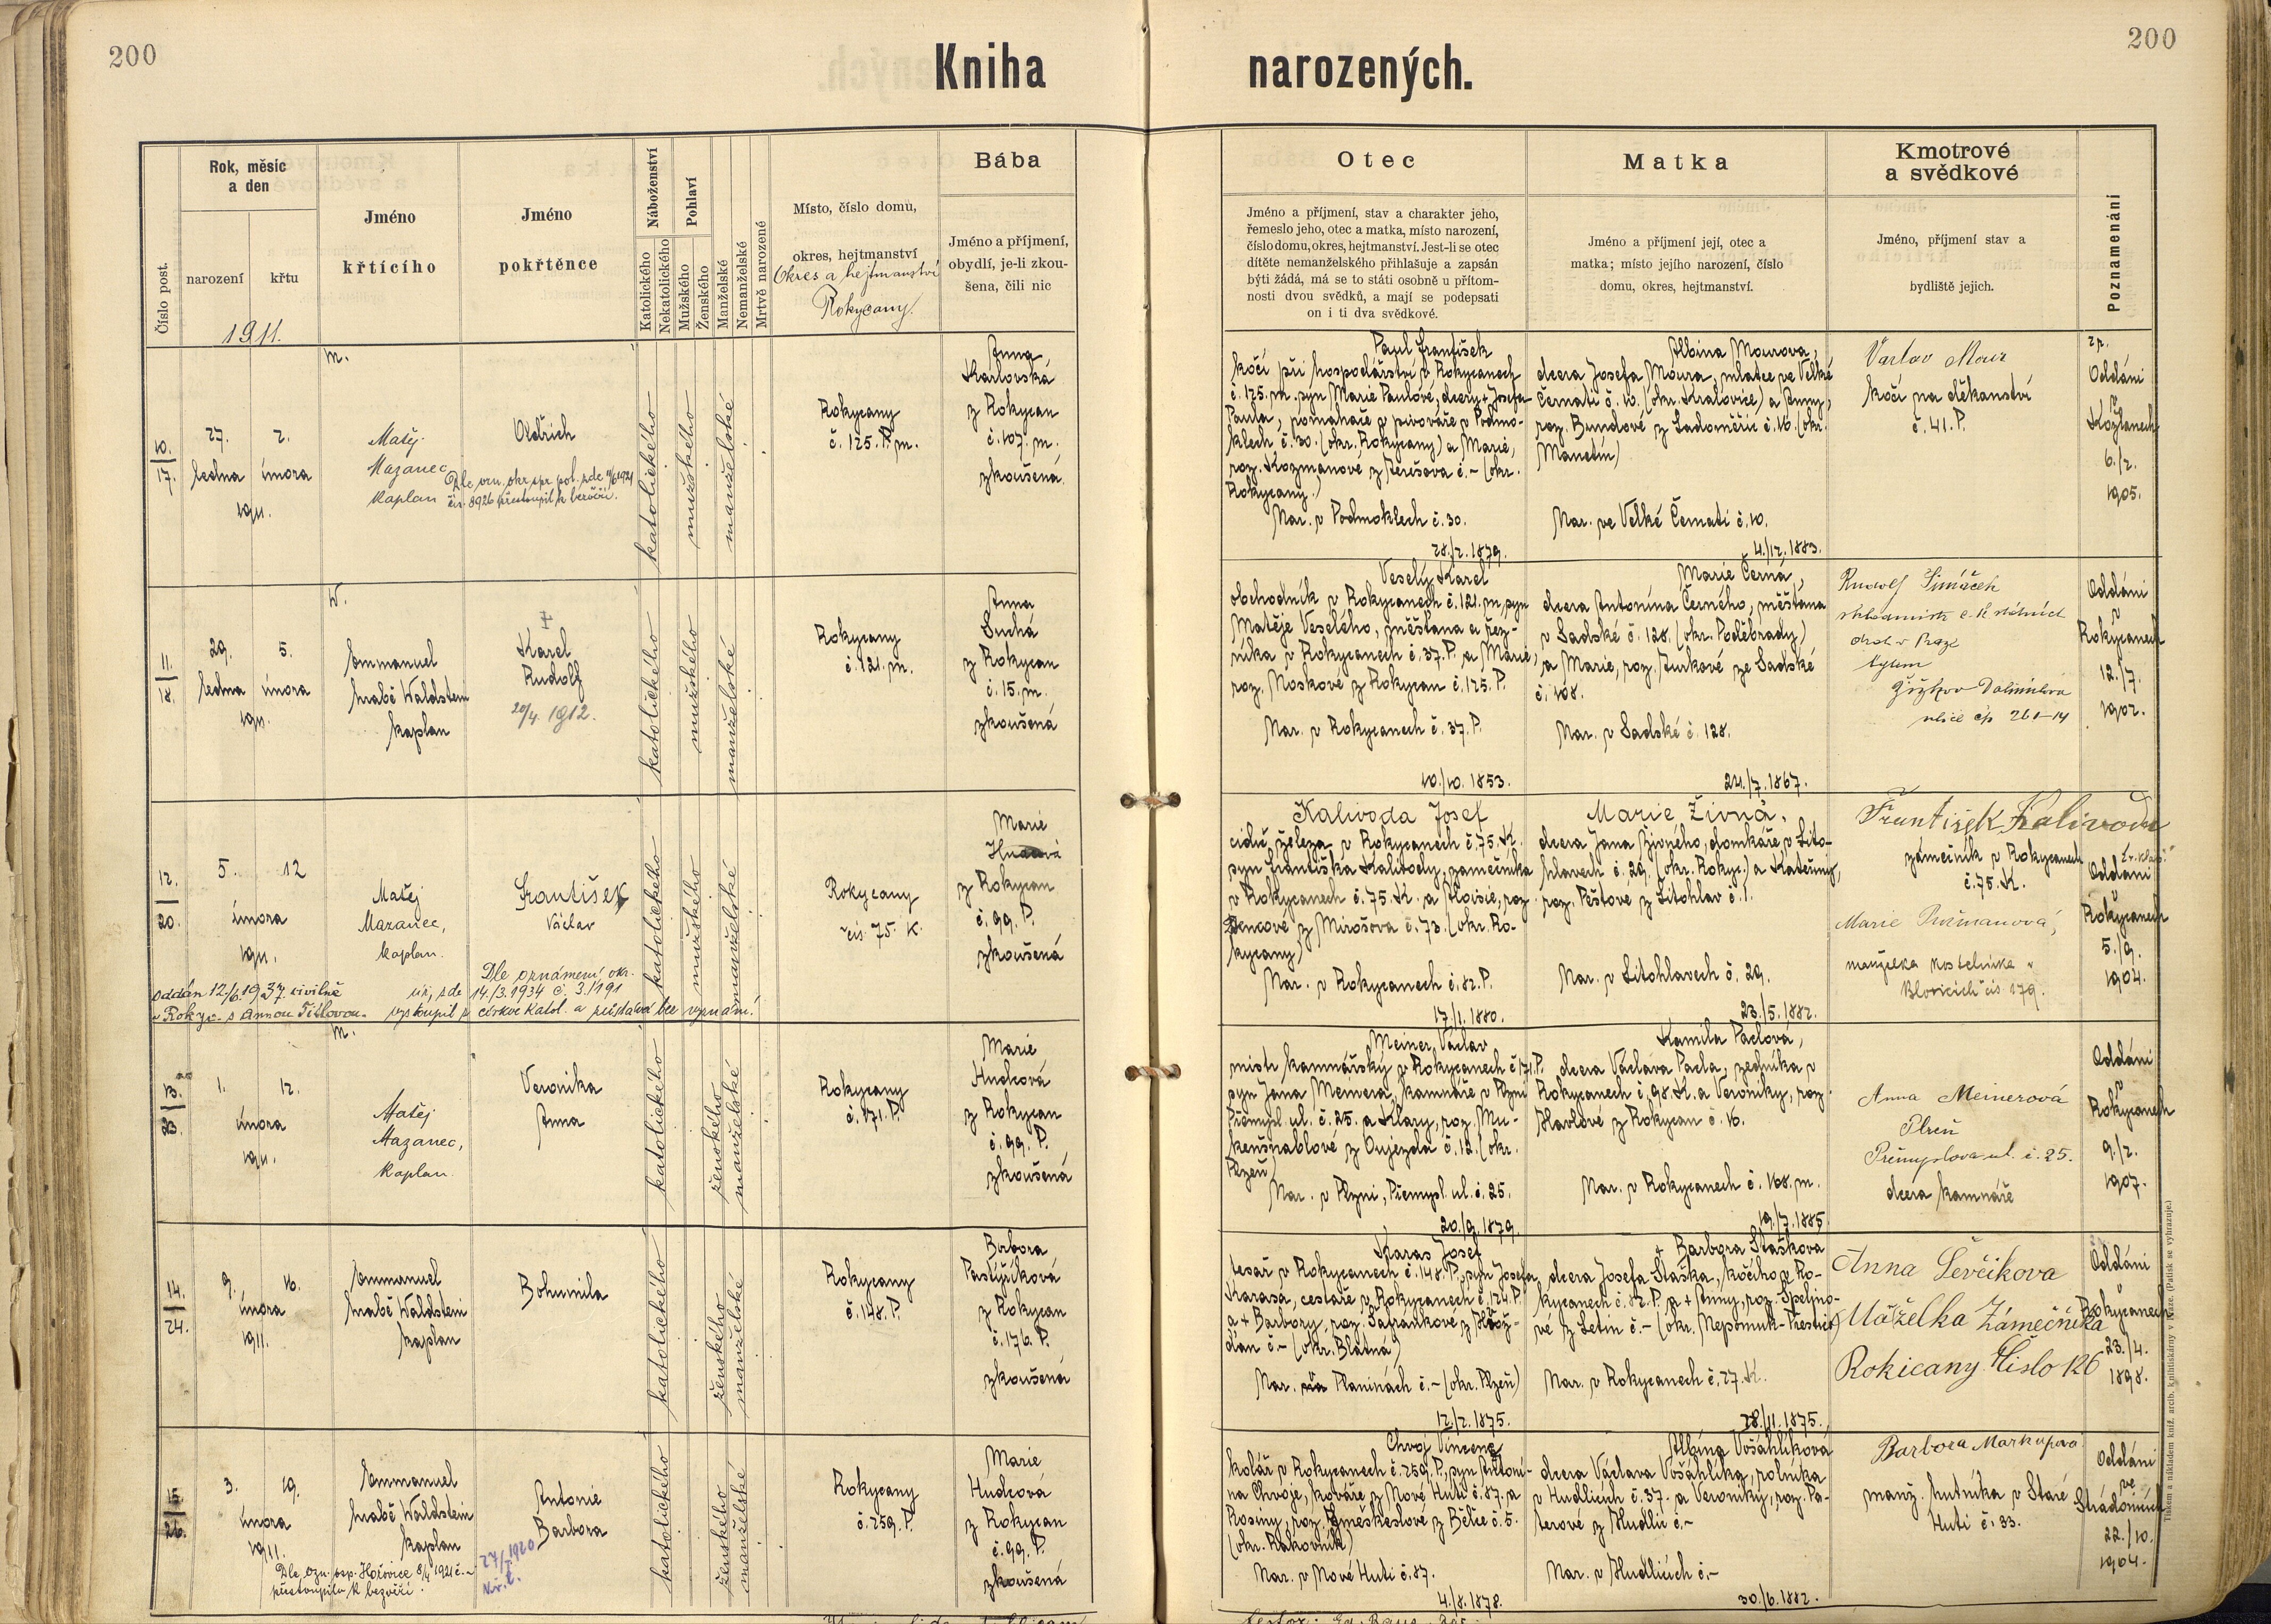 200
Kniha narozených.
200
Číslo post.
Rok, měsíc
a den
narození
křtu
1911.
Jméno
křtícího
Jméno
pokřtěnce
Náboženství
Katolického
Nekatolického
Pohlaví
Mužského
Ženského
Manželské
Nemanželské
Mrtvě narozené
Místo, číslo domu,
okres, hejtmanství
Okres a hejtmanství
Rokycany.
Bába
Jméno a příjmení,
obydlí, je-li zkou-
šena, čili nic
Otec
Jméno a příjmení, stav a charakter jeho,
řemeslo jeho, otec a matka, místo narození,
číslo domu, okres, hejtmanství. Jest-li se otec
dítěte nemanželského přihlašuje a zapsán
býti žádá, má se to státi osobně u přítom-
nosti dvou svědků, a mají se podepsati
on i ti dva svědkové.
Matka
Jméno a příjmení její, otec a
matka; místo jejího narození, číslo
domu, okres, hejtmanství.
Kmotrové
a svědkové
Jméno, příjmení stav a
bydliště jejich.
Poznamenání
10.
17.
27. 2.
ledna února
1911.
m.
Matěj
Mazanec
kaplan
Oldřich
přestoupil k bezvěří.
katolického
mužského
manželské
Rokycany
č. 125. P. m.
Anna
Karlovská
z Rokycan
č. 107. m.
zkoušená
Paul František
kočí při hospodářství v Rokycanech
č. 125. m. syn Marie Paulové, dcery + Josefa
Paula, pomahače v pivováře v Podmo-
klech č. 30. (okr. Rokycany) a Marie,
roz. Kozmanové z Terešova č. - (okr.
Rokycany.)
Nar. v Podmoklech č. 30.
28./2. 1879.
Albina Mourova,
dcera Josefa Moura, mlatce ve Velké
Černati č. 10. (okr. Kralovice) a Anny,
roz. Bundové z Ladoměřic č. 16. (okr.
Manetín)
Nar. ve Velké Černati č. 10.
4./12. 1883.
Václav Mour
kočí na děkanství
č. 41. P.
zp.
Oddáni
v
Kožlanech
6./2.
1905.
11.
18.
29. 5.
ledna února
1911.
W.
Emmanuel
hrabě Waldstein
kaplan
+
Karel
Rudolf
20/4. 1912.
katolického
mužského
manželské
Rokycany
č. 121. m.
Anna
Suchá
z Rokycan
č. 15. m.
zkoušená
Veselý Karel
obchodník v Rokycanech č. 121. m, syn
Matěje Veselého, měšťana a řez-
níka v Rokycanech č. 37. P. a Marie,
roz. Moskové z Rokycan č. 125. P.
Nar. v Rokycanech č. 37. P.
10./10. 1853.
Marie Černá,
dcera Antonína Černého, měšťana
v Sadské č. 128. (okr. Poděbrady)
a Marie, roz. Turkové ze Sadské
č. 108.
Nar. v Sadské č. 128.
24./7. 1867.
Rudolf Šimáček
c. k. státních
drah v Praze
Žižkov Dalimilova
ulice čp 261-14
Oddáni
v
Rokycanech
12./7.
1902.
12.
20.
5. 12
února
1911.
Matěj
Mazanec,
kaplan.
František
Václav
Oddán 12./6. 1937. civilně
v Rokyc. s Annou
Dle oznámení okr.
úř. zde 14./3. 1934 č. 3./191
vystoupil z církve katol. a zůstává bez vyznání.
katolického
mužského
manželské
Rokycany
čís. 75. K.
Marie
Hudcová
z Rokycan
č. 99. P.
zkoušená
Kalivoda Josef
cidič železa v Rokycanech č. 75. K.
syn Františka Kalivody, zamečníka
v Rokycanech č. 75. K. a Aloisie, roz.
Bencové z Mirošova č. 73. (okr. Ro-
kycany)
Nar. v Rokycanech č. 82. P.
17./1. 1880.
Marie Živná,
dcera Jana Živného, domkáře v Lito-
hlavech č. 29. (okr. Rokyc.) a Kateřiny,
roz. Peštové z Litohlav č. 1.
Nar. v Litohlavech č. 29.
23./5. 1882.
František Kalivoda
zámečník v Rokycanech
č. 75. K.
Marie
manželka kostelníka v
Blovicích čís 179.
Oddáni
v
Rokycanech
5./9.
1904.
13.
23.
1. 12.
února
1911.
m.
Matěj
Mazanec,
kaplan.
Veronika
Anna
katolického
ženského
manželské
Rokycany
č. 171. P.
Marie
Hudcová
z Rokycan
č. 99. P.
zkoušená
Meiner Václav
mistr kamnářský v Rokycanech č. 171. P.
syn Jana Meinera, kamnáře v Plzni
Přemysl. ul. č. 25. a Klary, roz. Mu-
kenšnablové z Oujezda č. 12. (okr.
Plzeň)
Nar. v Plzni, Přemysl. ul. č. 25.
20./9. 1879.
Kamila Paclová,
dcera Václava Pacla, zedníka v
Rokycanech č. 98. K. a Veroniky, roz.
Havlové z Rokycan č. 16.
Nar. v Rokycanech č. 168. m.
19./7. 1885.
Anna Meinerová
Plzeň
Přemyslova ul. č. 25.
dcera kamnáře
Oddáni
v
Rokycanech
9./2.
1907.
14.
24.
9. 16.
února
1911.
Emmanuel
hrabě Waldstein
kaplan
Bohumila
katolického
ženského
manželské
Rokycany
č. 148. P.
Barbora
Pastýříková
z Rokycan
č. 176. P.
zkoušená
Karas Josef
tesař v Rokycanech č. 148. P., syn Josefa
Karasa, cestáře v Rokycanech č. 124. P.
a + Barbory, roz. Šafránkové z
dán č. - (okr. Blatná)
Nar. Planinách č. - (okr. Plzeň)
12./2. 1875.
+ Barbora Staškova
dcera Josefa Staška, kočího v Ro-
kycanech č. 82. P. a + Anny, roz. Špeljno-
vé z Letin č. - (okr. Nepomuk-Přestice)
Nar. v Rokycanech č. 27. K.
28./11. 1875.
Anna Ševčíkova
Mažzelka Zámečníka
Rokicany Číslo 126
Oddáni
v
Rokycanech
23./4.
1898.
15.
26.
3. 19.
února
1911.
Emmanuel
hrabě Waldstein
kaplan
Antonie
Barbora
Dle ozn. osp. Hořovice 8/4 1921 č. -
přestoupila k bezvěří.
katolického
ženského
manželské
Rokycany
č. 259. P.
Marie
Hudcová
z Rokycan
č. 99. P.
zkoušená
Chvoj Vincenc
kolář v Rokycanech č. 259. P., syn Antoní-
na Chvoje, kováře z Nové Huti č. 87. a
Rosiny, roz. z Bělče č. 5.
(okr. Rakovník)
Nar. v Nové Huti č. 87.
4./8. 1878.
Albína Vošáhlíková
dcera Václava Vošáhlíka, rolníka
v Hudlicích č. 37. a Veroniky, roz. Pa-
terové z Hudlic č. -
Nar. v Hudlicích č. -
30./6. 1882.
Barbora Markupova
manž. hutníka v Staré
Huti č. 33.
Oddáni
ve
Stradonicích
22./10.
1904.